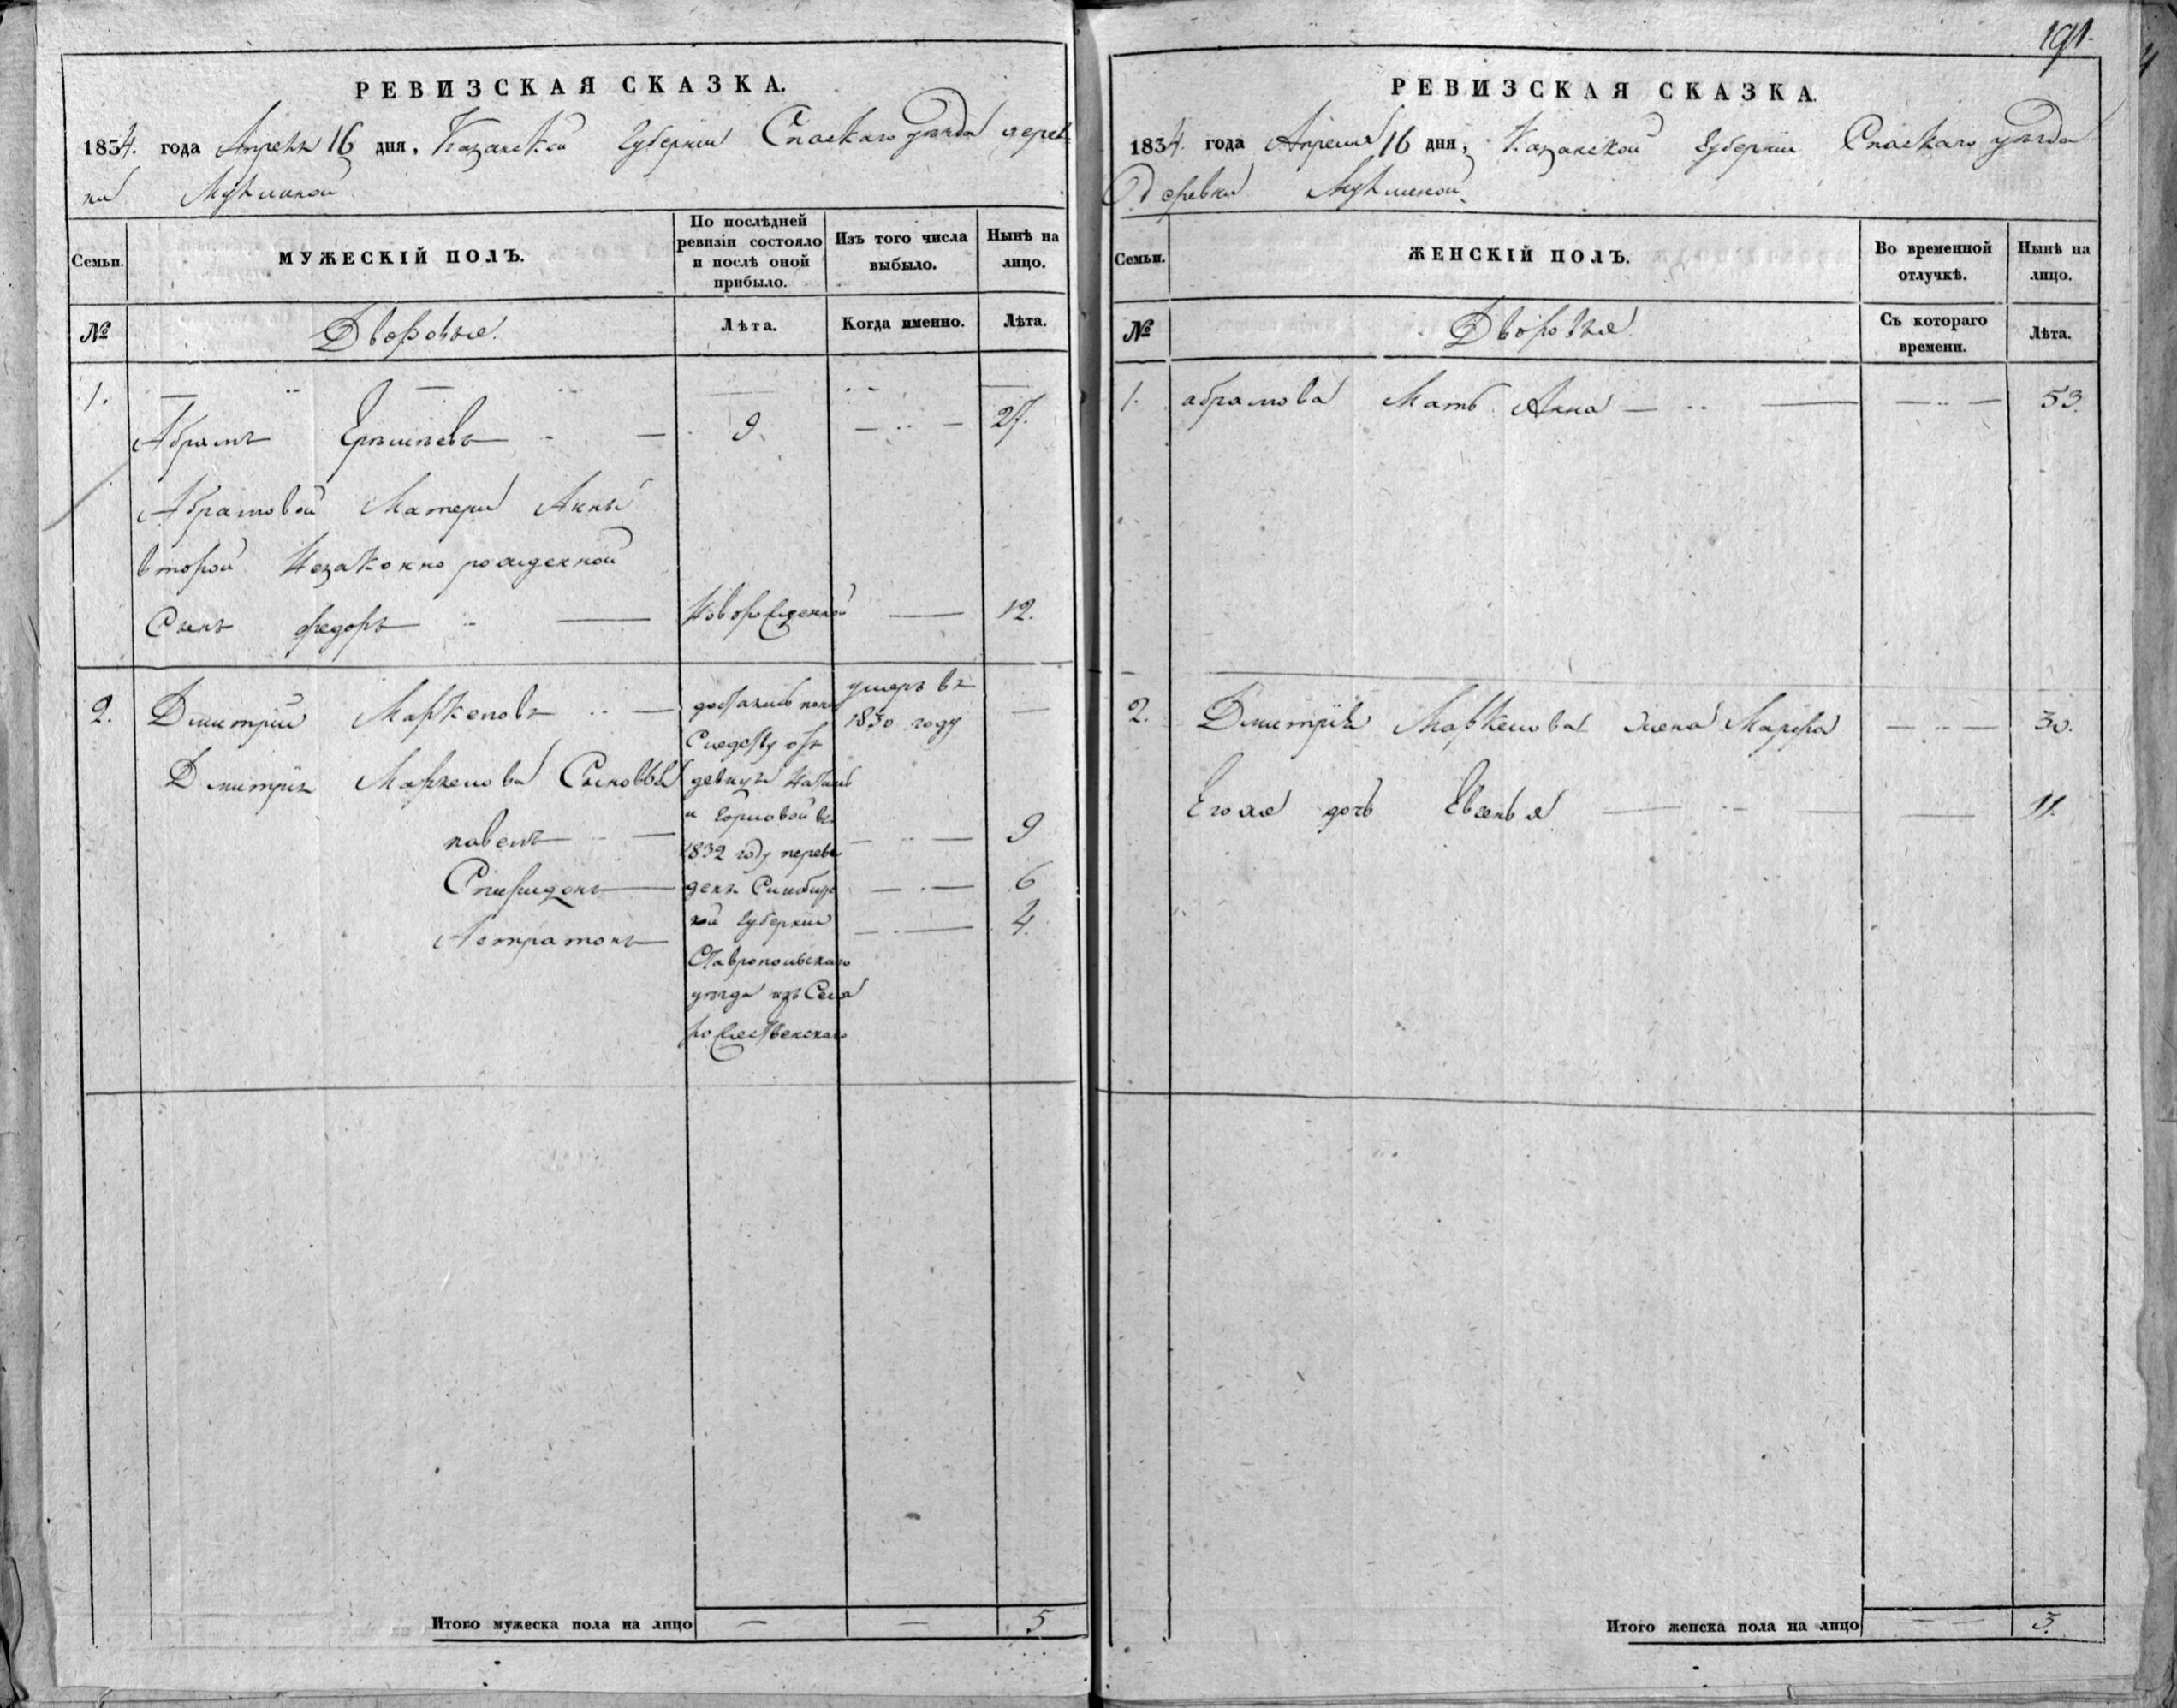 РЕВИЗСКАЯ СКАЗКА.
1834. года Апреля 16 дня, Казанской Губернии Спаскаго уѣзда дерев
ни
Семьи.
МУЖЕСКІЙ ПОЛЪ.
По послѣдней
ревизіи состояло
и послѣ оной
прибыло.
Изъ того числа
выбыло.
Нынѣ на
лицо.
№
Дворовые.
Лѣта.
Когда именно.
Лѣта.
1.
Абрамъ 9. 27.
Абрамовой Матери Анны
второй незаконно рожденной
Сынъ Федоръ новорожденной 12.
2. Дмитрий Маркеловъ достались по умеръ въ
Следству отъ 1830 году
Дмитрія Маркелова Сыновья девицы
и въ
павелъ 9
1832 году переве
Спиридонъ денъ Симбирс 6
кой Губернии
Астратонъ 4.
Ставропольскаго
уѣзда изъ Села
рожественскаго
Итого мужеска пола на лицо — — 5
191.
РЕВИЗСКАЯ СКАЗКА.
1834. года Апреля 16 дня, Казанской Губернии Спаскаго уѣзда
Деревни
Семьи.
ЖЕНСКІЙ ПОЛЪ.
Во временной
отлучкѣ.
Нынѣ на
лицо.
№
Дворовые
Съ котораго
времени.
Лѣта.
1. абрамова Мать Анна 53.
2. Дмитрія Маркелова жена Марфа 30.
Егоже дочь Евгенья 11.
Итого женска пола на лицо — — 3.